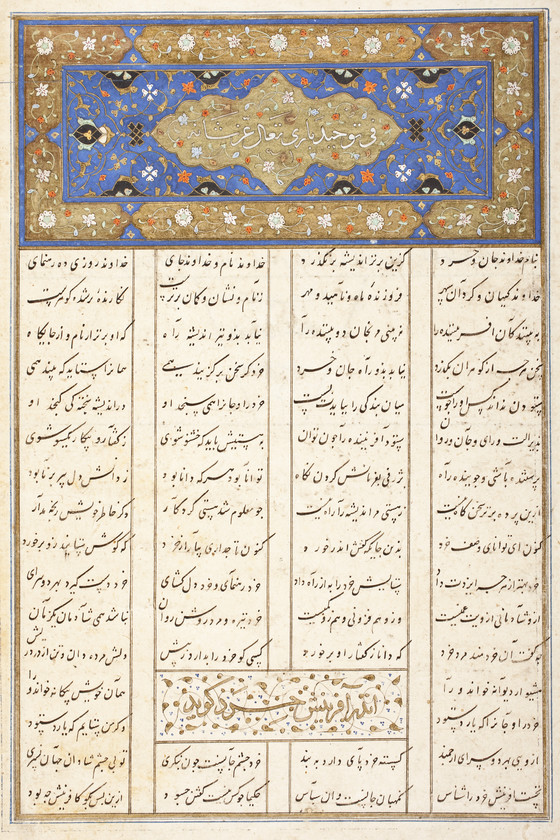 فی توحید باری تعالی عز شانه
بنام خداوند جان و خرد کزین برتر اندیشه برنگذرد خداوند نام و خداوند جای خداوند روزی ده رهنمای
خداوند کیهان و گردان سپهر فروزنده ماه و ناهید و مهر ز نام و نشان و گمان برترست نگارنده بر شده گوهرست
به بینندگان آفریننده را نبینی مرنجان دو بیننده را نیابد بدو نیز اندیشه راه که او برتر از نام و از جایگاه
سخن هر چه از گوهران بگذرد نیابد بدو راه جان و خرد خرد گر سخن برگزیند همی همانرا ستاید که بیند همی
ستودن نداند کس او را چو هست میان بندگی را ببایدت بست خرد را و جانرا همی سنجد او در اندیشه سخته کی گنجد او
رای و جان و روان ستود آفریننده را چون توان به هستیش باید که خستو شوی ز گفتار و پیکار یکسو شوی
پرستنده باشی و جوینده راه بژرفی بفرمانش کردن نگاه توانا بود هر که دانا بود ز دانش دل پیر برنا بود
ازین پرده برتر سخن گاه نیست ز هستی مر اندیشه را راه نیست چو معلوم شد هستی کردگار دگر خاطر خویش رنجه مدار
کنون ای توانای وصف خرد بدین جایگه گفتن اندر خورد کنون تا چه داری بیار از خرد که گوش نیوشنده زو برخورد
خرد بهتر از هر چه ایزدت داد ستایش خرد را به از راه داد خرد رهنمای و خرد دلگشای خرد دست گیرد بهر دو سرای
ازو شادمانی ازویت غمیست وزو هم فزونی وهم زو کمیست خرد تیره و مرد روشن روان نباشد همی شادمان یکزمان
چه گفت آن خردمند مرد خرد که دانا ز گفتار او برخورد کسی کو خرد را ندارد ز پیش دلش
هشیوار دیوانه خواند ورا همان خویش بیگانه خواند ورا
خرد را و جانرا که یارد ستود و گر من ستایم که یارد شنود
اندر آفرینش خرد گوید
ازویی بهر دو سرای ارجمند گسسته خرد پای دارد به بند خرد چشم جانست چون بنگری تو بی چشم شادان جهان نسپری
نخست آفرینش خرد را شناس نگهبان جانست و آن سپاس حکیما چو کس نیست گفتن چه سود ازین پس بگو کافرینش چه بود